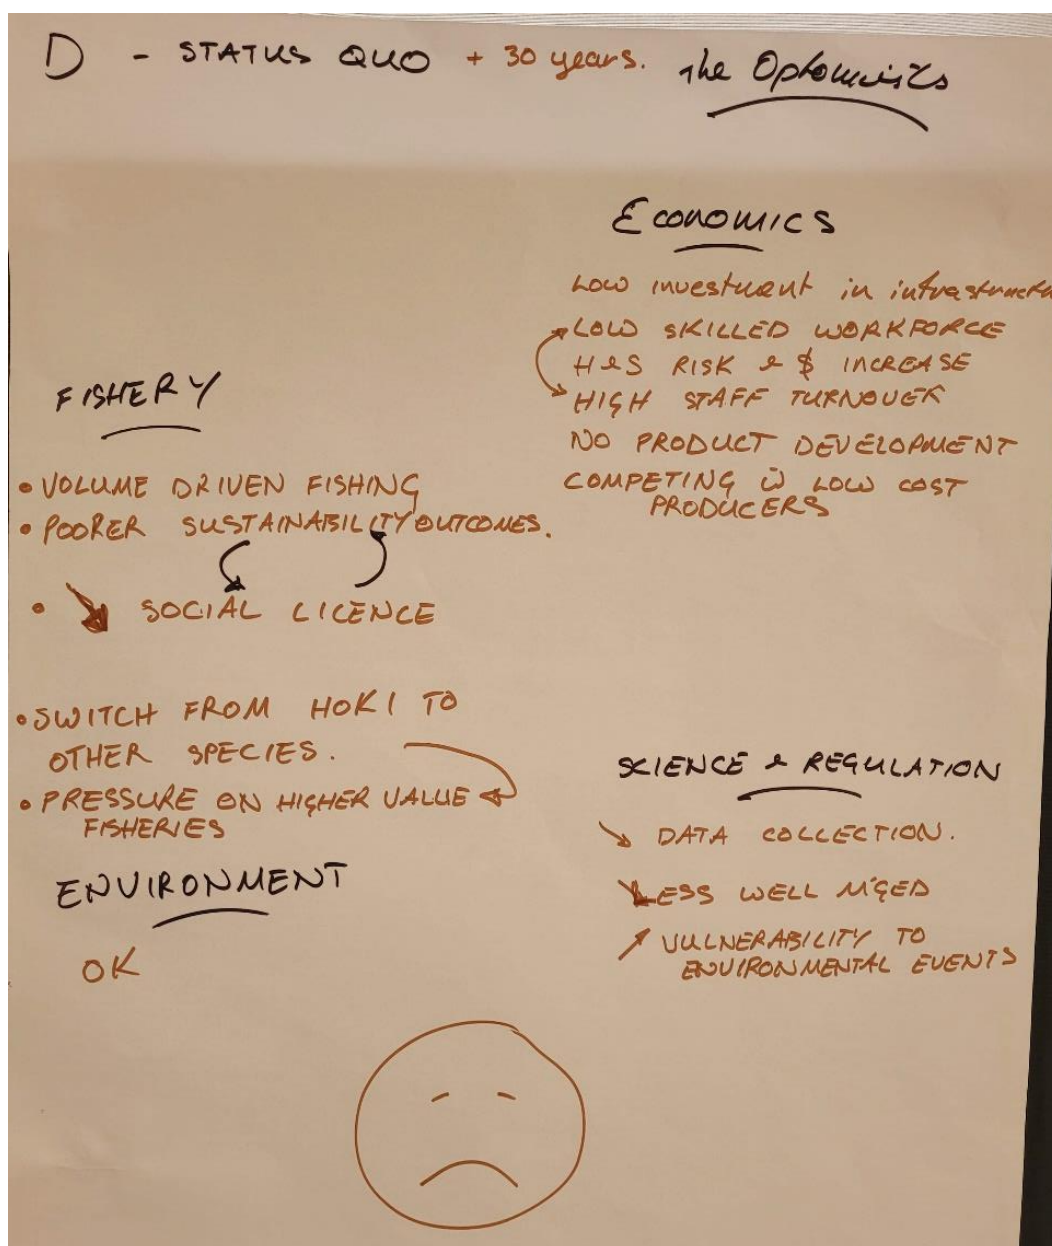 D - STATUS QUO + 30 years. The Optomists
FISHERY
• VOLUME DRIVEN FISHING
• POORER SUSTAINABILITY OUTCOMES.
• ↘ SOCIAL LICENCE
• SWITCH FROM HOKI TO
OTHER SPECIES.
• PRESSURE ON HIGHER VALUE
FISHERIES
ENVIRONMENT
OK
ECONOMICS
Low investment in infrastructu
LOW SKILLED WORKFORCE
H&S RISK & $ INCREASE
HIGH STAFF TURNOVER
NO PRODUCT DEVELOPMENT
COMPETING W LOW COST
PRODUCERS
SCIENCE & REGULATION
↘ DATA COLLECTION.
↘ LESS WELL M'GED
↗ VULNERABILITY TO
ENVIRONMENTAL EVENTS